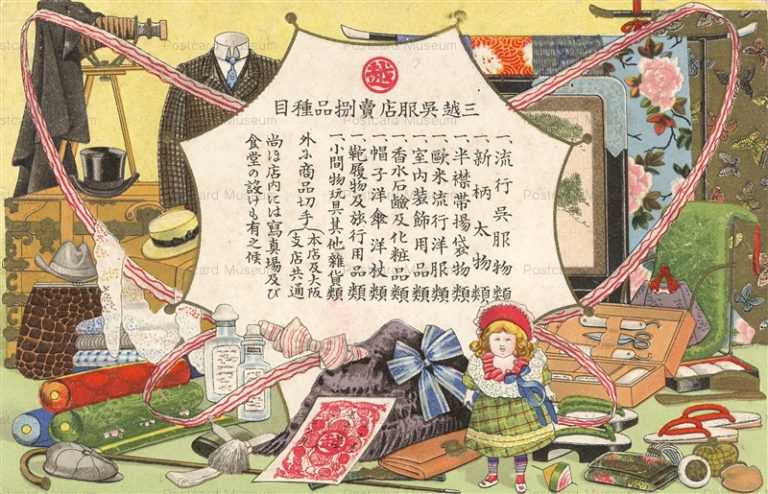 三越呉服店賣捌品種目
一、流行呉服物類
一、新柄太物類
一、半襟帯揚袋物類
一、歐米流行洋服類
一、室内装飾用品類
一、香水石鹼及化粧品類
一、帽子洋傘洋杖類
一、靴履物及旅行用品類
一、小間物玩具其他雜貨類
外ニ商品切手(本店及大阪支店共通
尚ほ店内には寫真場及び
食堂の設けも有之候
Postcard Museum